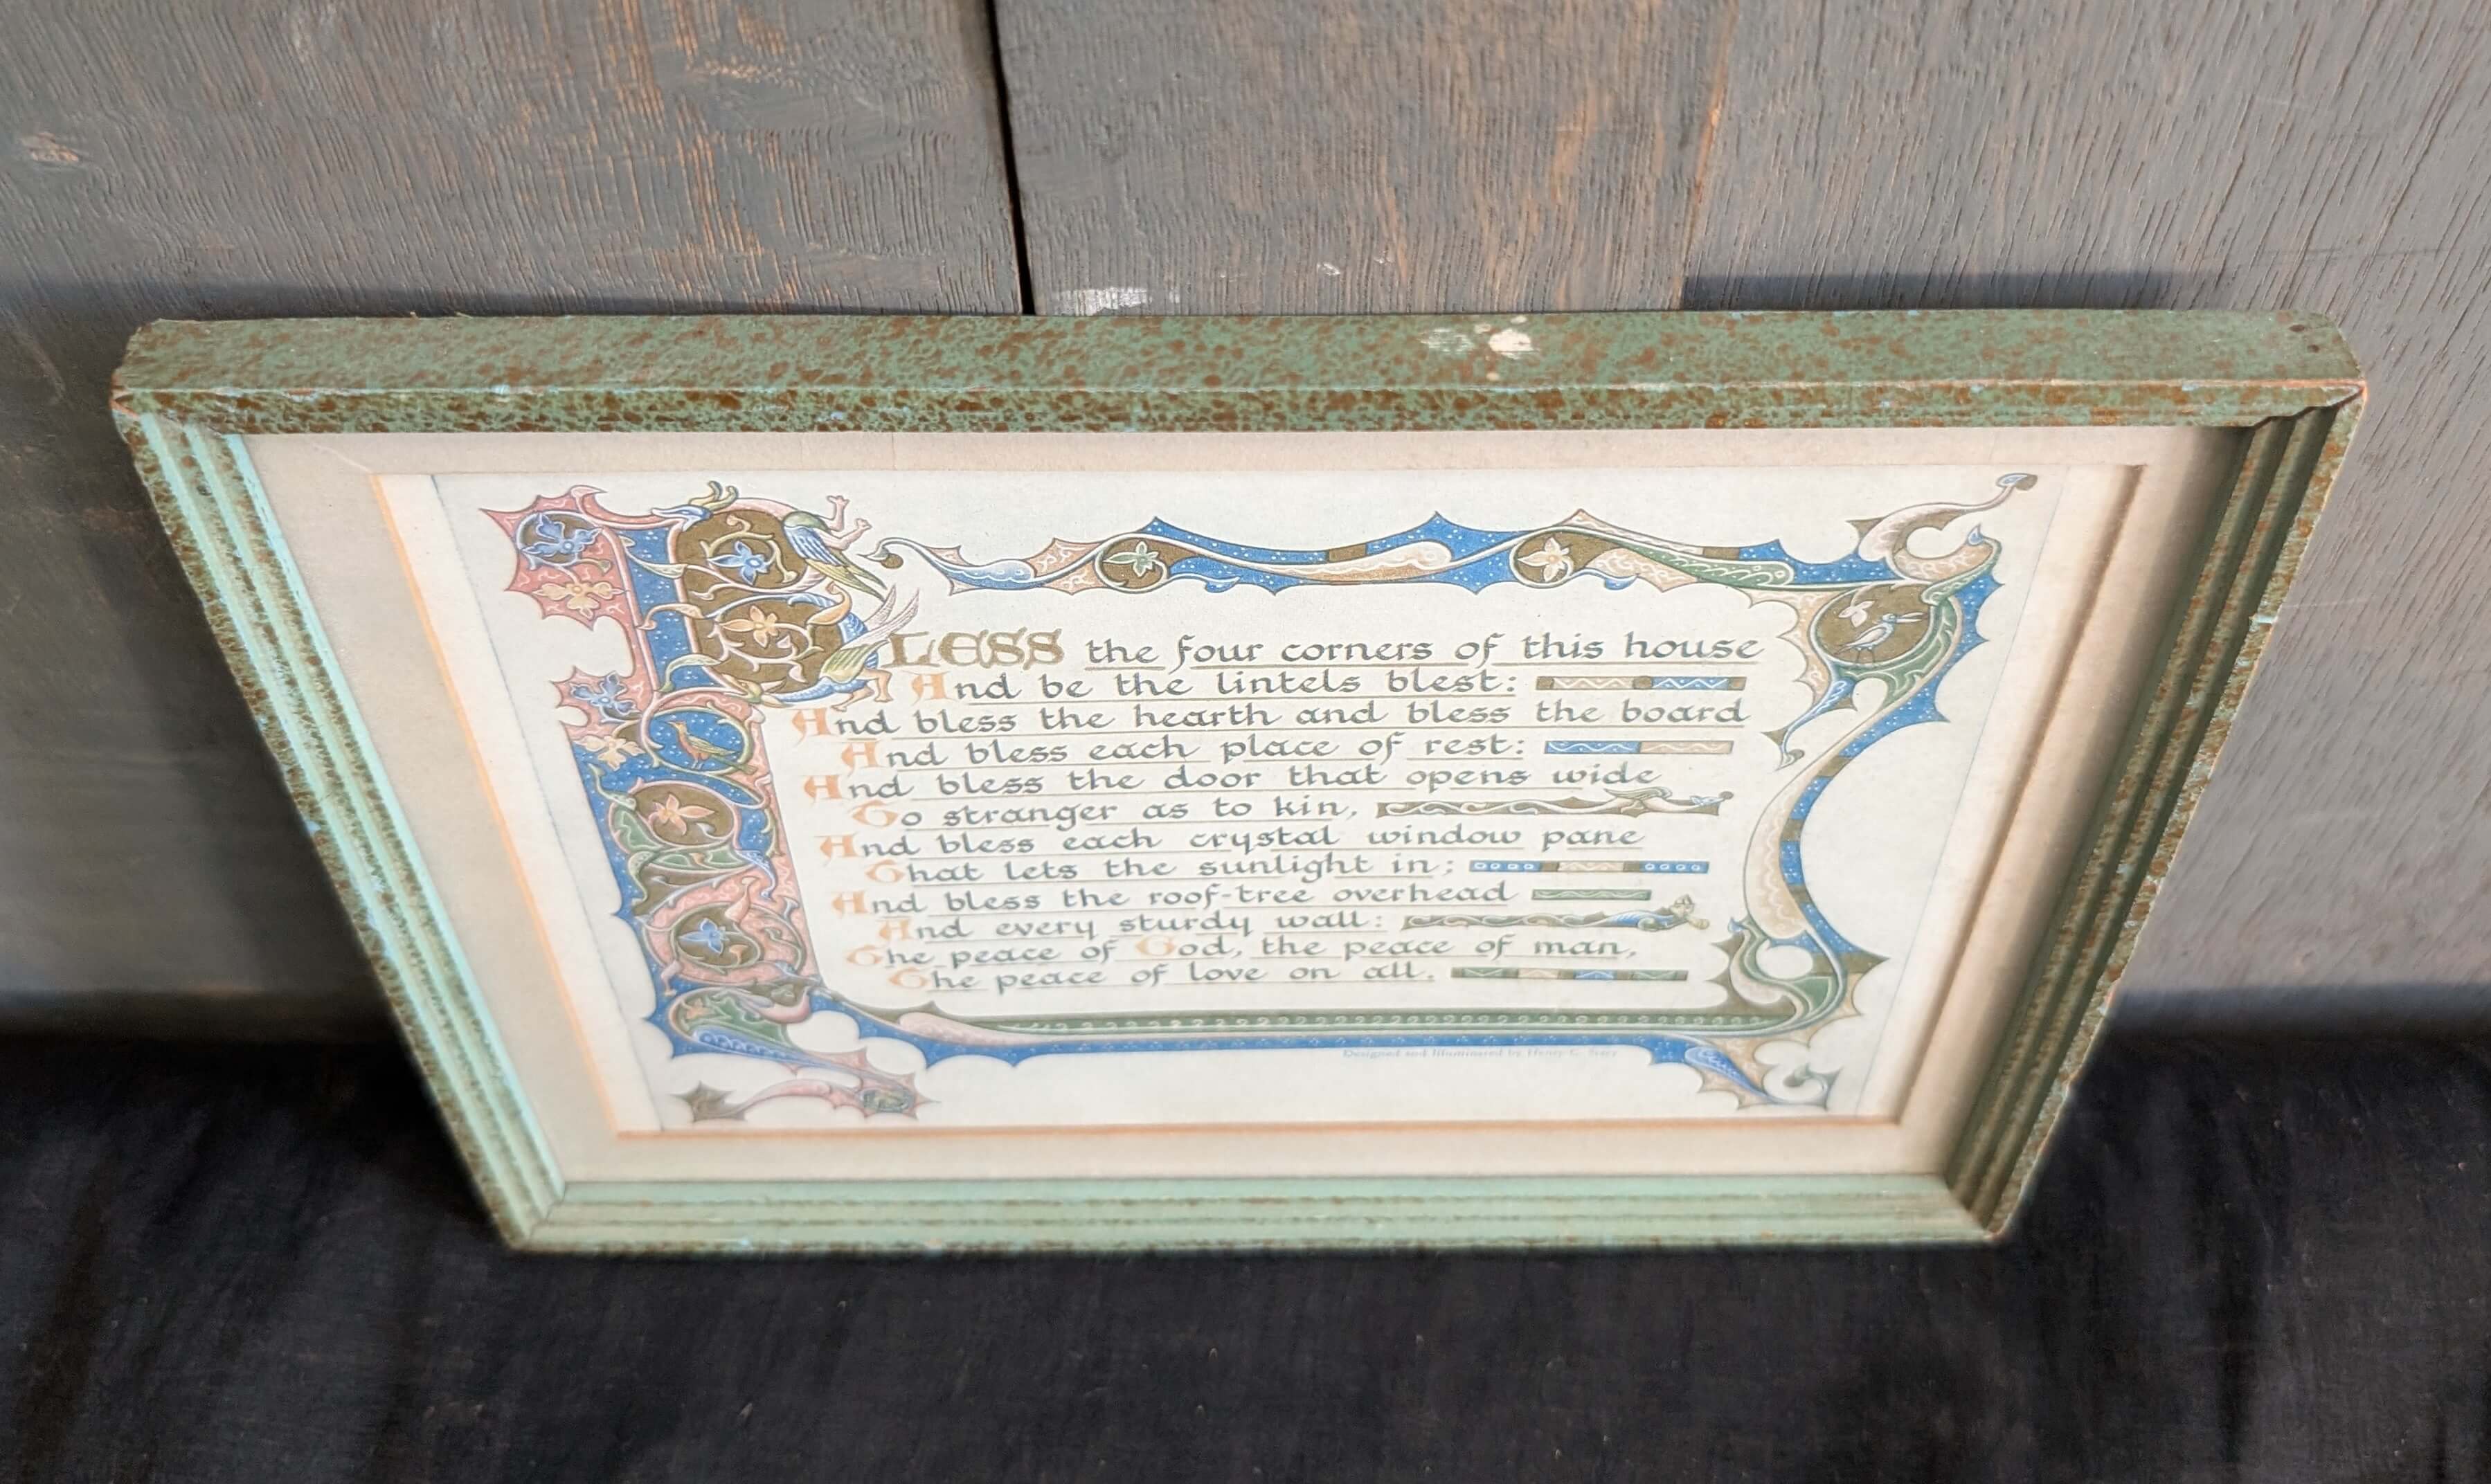 BLESS the four corners of this house
And be the lintels blest:
And bless the hearth and bless the board
And bless each place of rest:
And bless the door that opens wide
To stranger as to kin,
And bless each crystal window pane
That lets the sunlight in;
And bless the roof-tree overhead
And every sturdy wall:
The peace of God, the peace of man,
The peace of love on all.
Designed and Illuminated by Henry C.